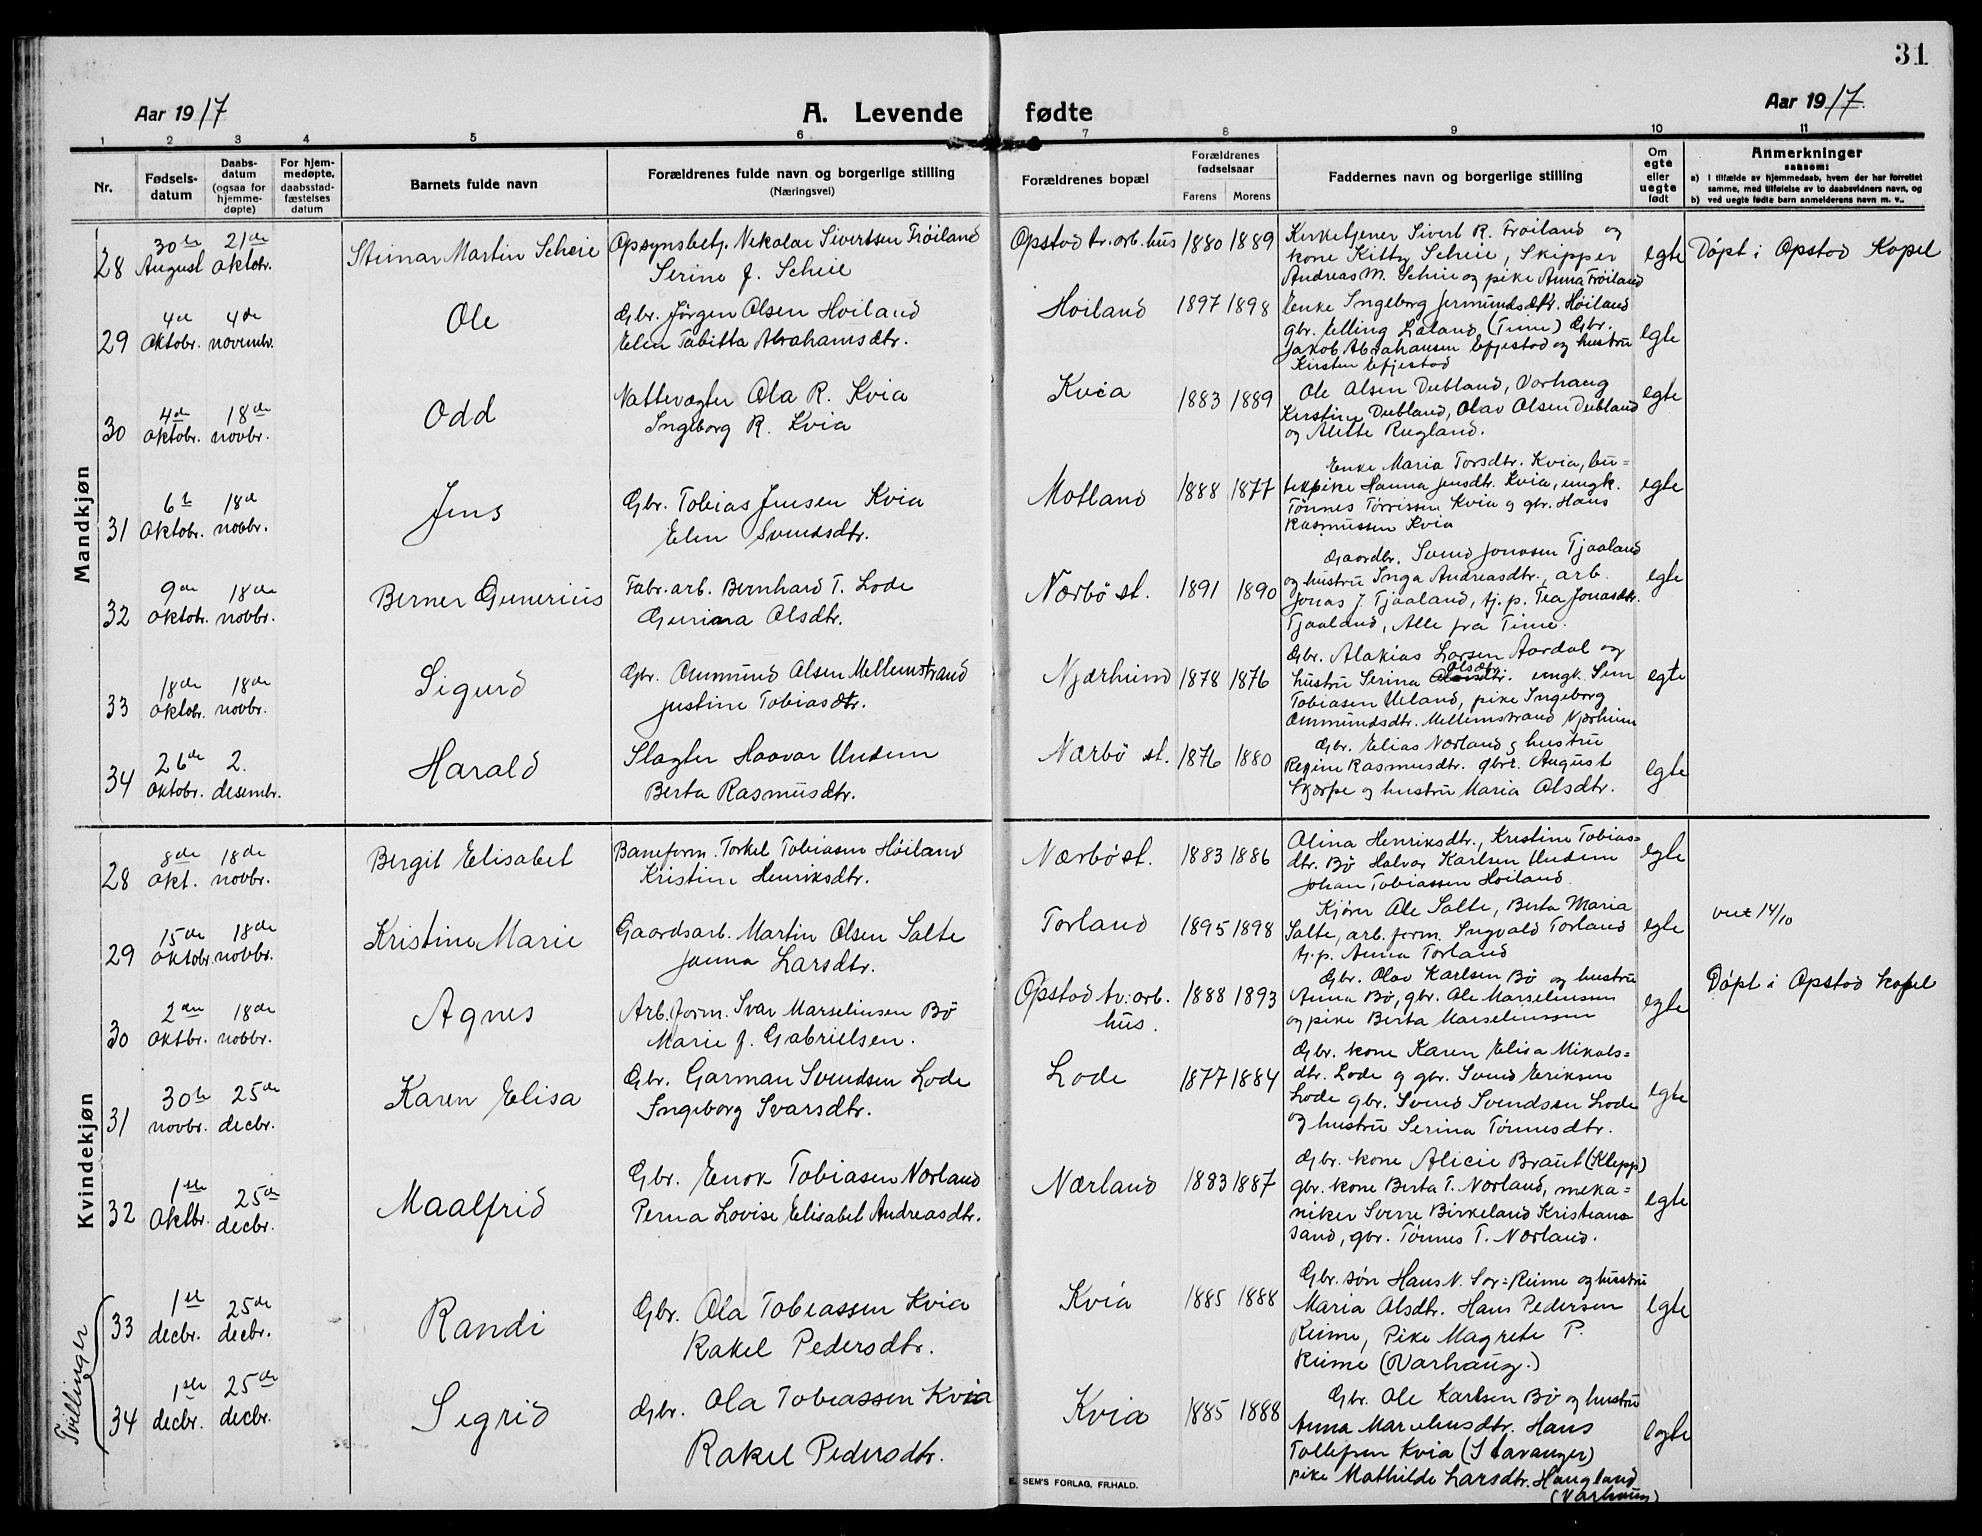 31
Aar 1917
A. Levende fødte
Aar 1917.
1 2 3 4 5 6 7 8 9 10 11
Nr.
Fødsels-
datum
Daabs-
datum
(ogsaa for
hjemme-
døpte)
For hjem-
medøpte,
daabsstad-
fæstelses
datum
Barnets fulde navn
Forældrenes fulde navn og borgerlige stilling
(Næringsvei)
Forældrenes bopæl
Forældrenes
fødselsaar
Farens Morens
Faddernes navn og borgerlige stilling
Om
egte
eller
uegte
født
Anmerkninger
saasom:
a) i tilfælde av hjemmedaab, hvem der har forrettet
samme, med tilføielse av to daabsvidners navn, og
b) ved uegte fødte barn anmelderens navn m. v..
Mandkjøn
28 30te August 21de Oktobr. Steinar Martin Scheie
Opsynsbetj. Nikolai Sivertsen Tröiland
Serine f. Scheie
Opstad tv. arb. hus 1880 1889
Kirketjener Sivert R. Tröiland og
kone Kitty Scheie, Skipper
Andreas M. Scheie og pike Anna Tröiland
egte
Döpt i Opstad Kapel
29 4de Oktobr. 4de novembr. Ole
Gbr. Jörgen Olsen Höiland
Elen Tabitta Abrahamsdtr.
Höiland 1897 1898
Enke Ingeborg Jermundsdtr. Höiland
gbr. Elling Laland (Time) Gbr.
Jakob Abrahamsen Efjestad og hustru
Kirsten Efjestad
egte
30 4de Oktobr. 18de novbr. Odd
Nattevægter Ola R. Kvia
Ingeborg R. Kvia
Kvia 1883 1889
Ole Olsen Dubland, Varhaug
Kirstine Dubland, Olav Olsen Dubland
og Alette Rugland.
egte
31 6te Oktobr. 18de novbr. Jens
Gbr. Tobias Jensen Kvia
Elen Svendsdtr.
Motland 1888 1877
Enke Maria Torsdtr. Kvia, bu=
tikpike Hanna Jensdtr. Kvia, ungk.
Tönnes Törrissen Kvia og gbr. Hans
Rasmussen Kvia
egte
32 9de Oktobr. 18de novbr. Berner Gunerius
Fabr. arb. Bernhard T. Lode
Guriana Olsdtr.
Nærbö st. 1891 1890
Gaardbr. Svend Jonasen Tjaaland
og hustru Inga Andreasdtr., arb.
Jonas J. Tjaaland, tj. p. Tea Jonasdtr.
Tjaaland, Alle fra Time.
egte
33 18de Oktobr. 18de novbr. Sigurd
Gbr. Ommund Olsen Mellemstrand
Justine Tobiasdtr.
Njærheim 1878 1876
Gbr. Malakias Larsen Aardal og
hustru Serina Olsdtr. ungk. Sem
Tobiasen Ueland, pike Ingeborg
Ommundsdtr. Mellemstrand Njærheim
egte
34 26de Oktobr. 2. desembr. Harald
Slagter Haavar Undem
Berta Rasmusdtr.
Nærbö st. 1876 1880
Gbr. Elias Nærland og hustru
Regine Rasmusdtr. gbr. August
Skjærpe og hustru Maria Olsdtr.
egte
Kvindekjøn
28 8de Okt. 18de novbr. Bergit Elisabet
Baneform. Torkel Tobiasen Höiland
Kristine Henriksdtr.
Nærbö st. 1883 1886
Olina Henriksdtr., Kristine Tobias=
dtr. Bö Halvar Karlsen Undem
Johan Tobiassen Höiland
egte
29 15de Oktobr. 18de novbr. Kristine Marie
Gaardsarb. Martin Olsen Salte
Janna Larsdtr.
Torland 1895 1898
Kjörer Ole Salte, Berta Maria
Salte, arb. form. Ingvald Torland
tj. p. Anna Torland
egte
14/10
30 Oktbr. 18de novbr. Agnes
Arb. form. Ivar Marseliusen Bö
Marie f. Gabrielsen.
Opstad tv. arb.
hus. 1888 1893
Gbr. Olav Karlsen Bö og hustru
Anna Bö, gbr. Ole Marseliussen
og pike Berta Marseliussen
egte
Döpt i Opstad kapel
31 30te novbr. 25de decbr. Karen Elisa
Gbr. Garman Svendsen Lode
Ingeborg Ivarsdtr.
Lode 1877 1884
Gbr. kone Karen Elisa Mikals=
dtr. Lode og gbr. Svend Eriksen
Lode gbr. Svend Svendsen Lode
og hustru Serina Tönnesdtr.
egte
32 1ste Oktbr. 25de decbr. Maalfrid
Gbr. Enok Tobiasen Nærland
Perna Lovise Elisabet Andreasdtr.
Nærland 1883 1887
Gbr. kone Alicie Braut (Klepp)
gbr. kone Berta T. Nærland, meka=
niker Sverre Birkeland Kristian=
sand, gbr. Tönnes T. Nærland.
egte
Tvillinger
33 1ste decbr. 25de decbr. Randi
Gbr. Ola Tobiassen Kvia
Rakel Pedersdtr.
Kvia 1885 1888
Gbr. søn Hans N. Sör=Reime og hustru
Maria Olsdtr. Hans Pedersen
Reime, Pike Magrete P.
Reime (Varhaug.)
egte
34 1ste decbr. 25de decbr. Sigrid
Gbr. Ola Tobiassen Kvia
Rakel Pedersdtr.
Kvia 1885 1888
Gbr. Ole Karlsen Bö og hustru
Anna Marseliusdtr. Hans
Tollefsen Kvia (Stavanger)
pike Mathilde Larsdtr. Haugland
(Varhaug)
egte
E. SEM'S FORLAG, FR.HALD.